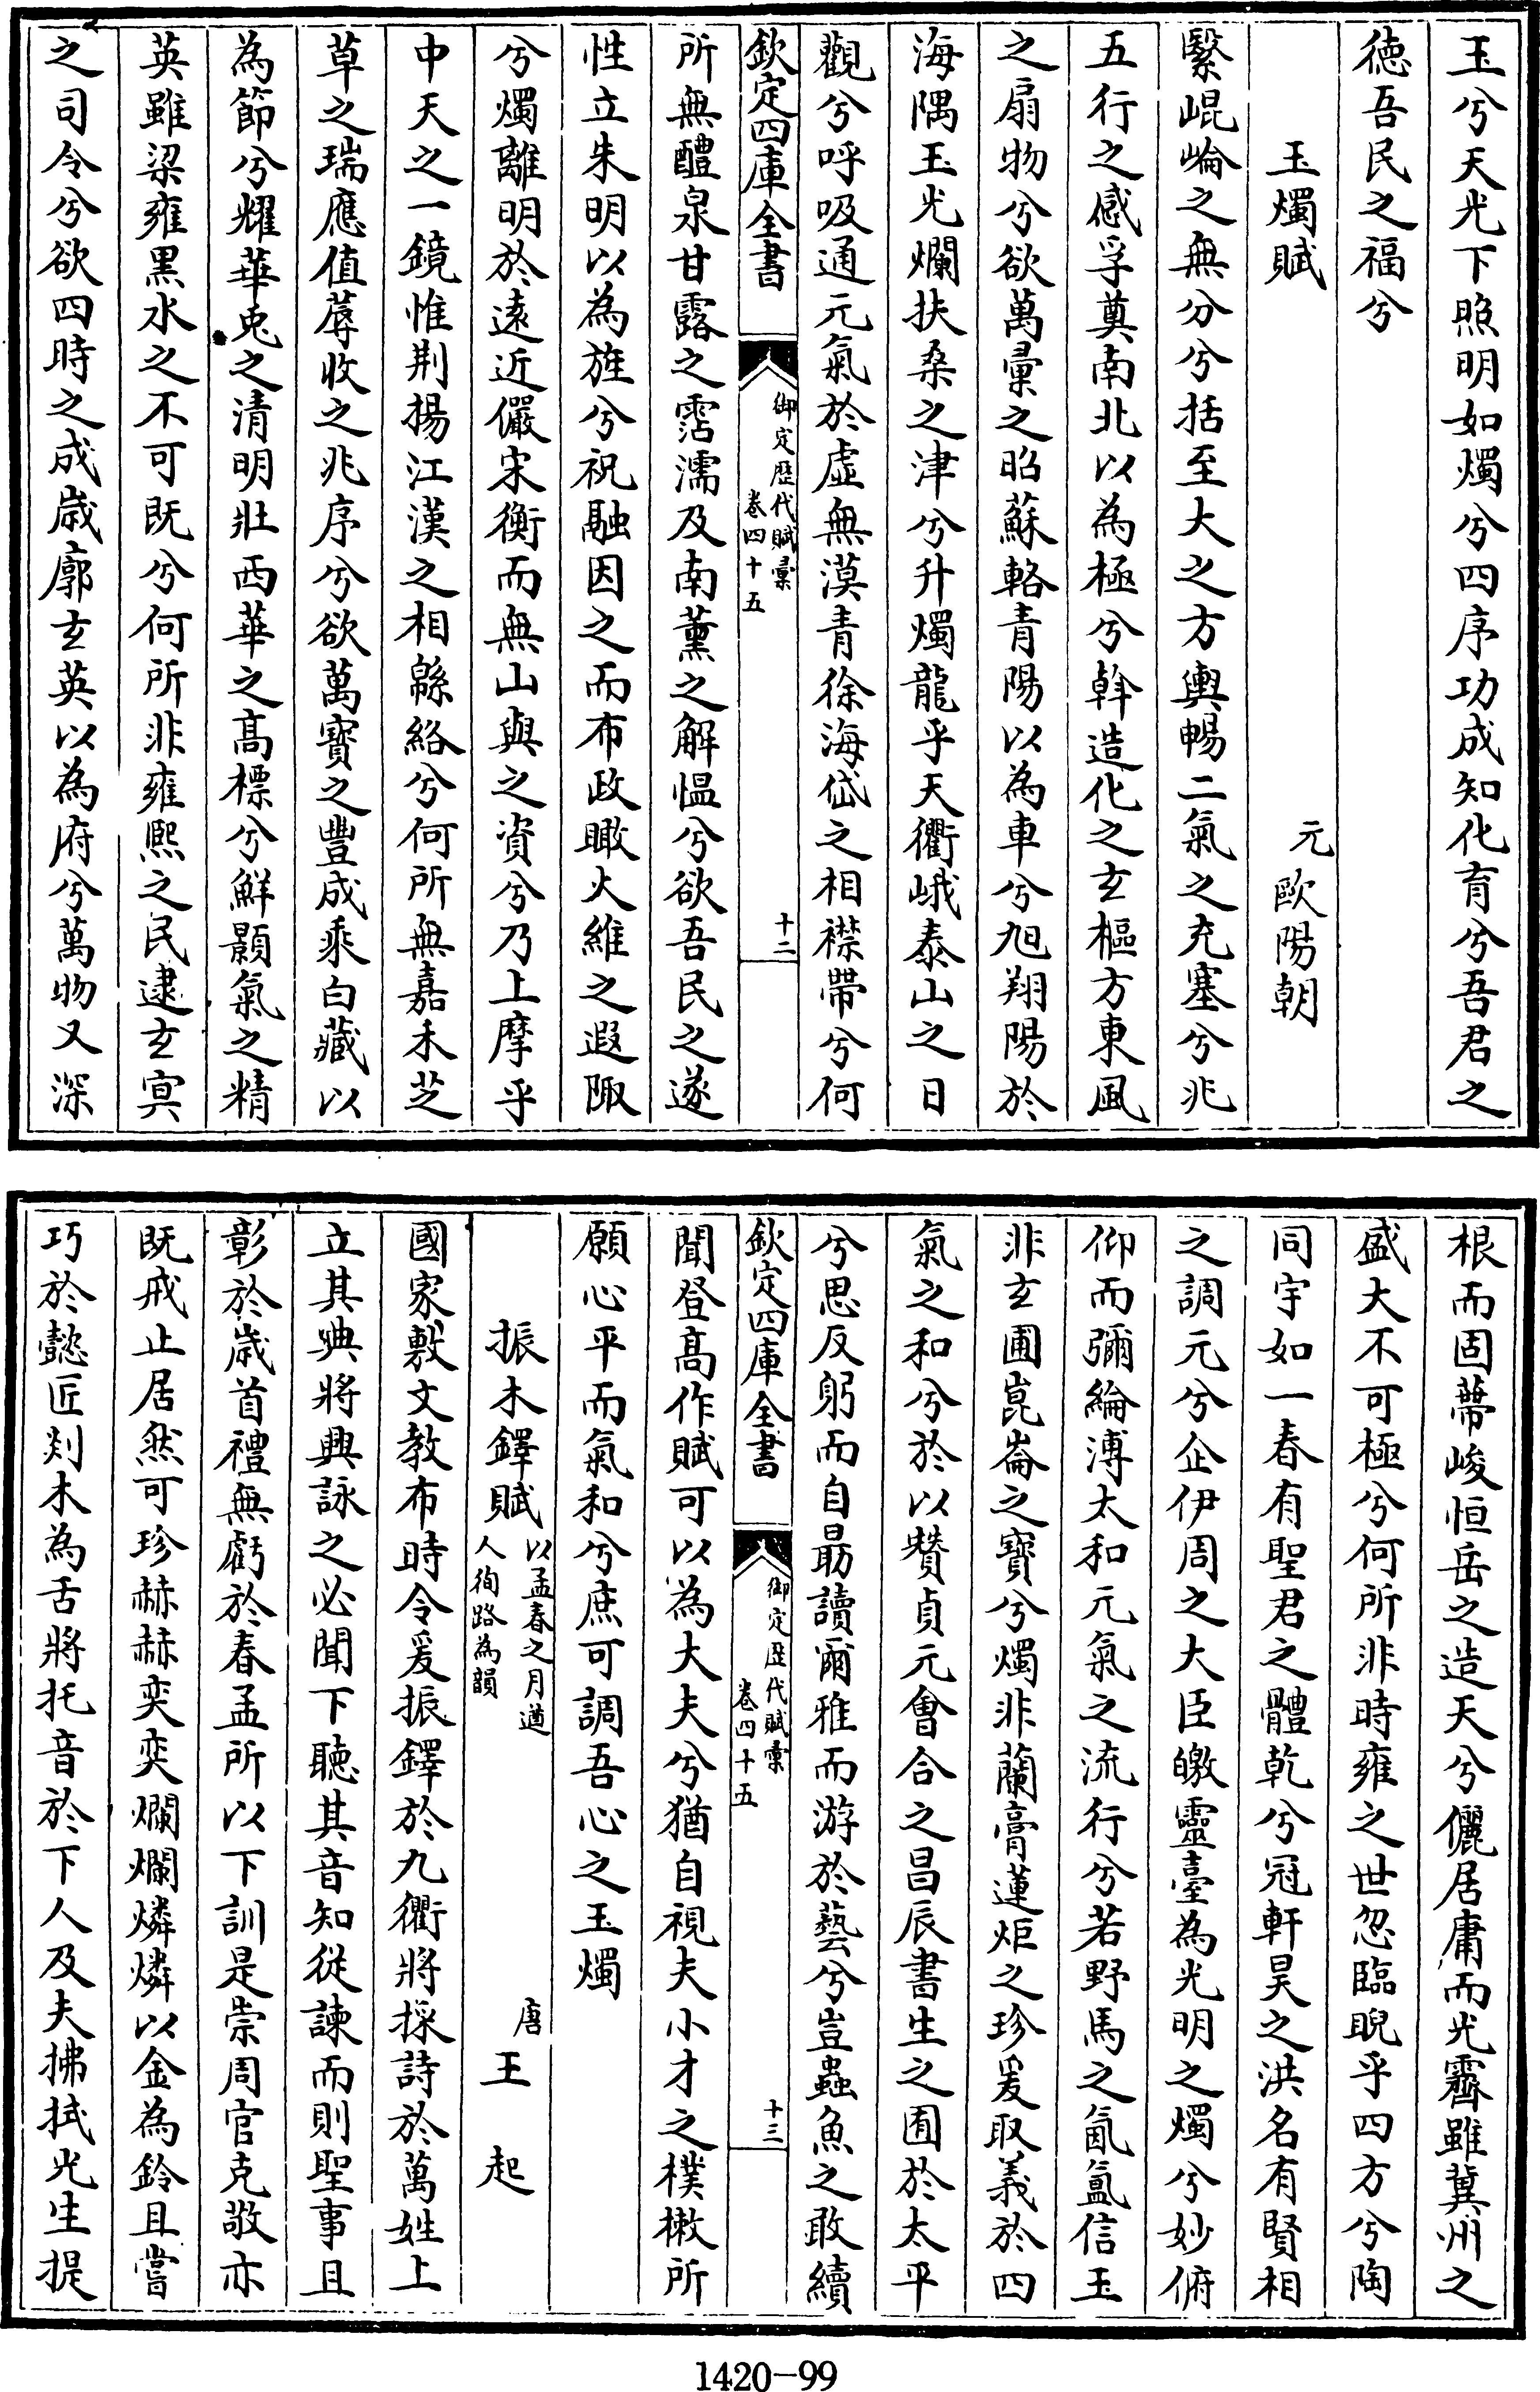 玉兮天光下照明如燭兮四序功成知化育兮吾君之
德吾民之福兮
玉燭賦
元歐陽朝
繄崐崘之無分兮括至大之方輿暢二氣之充塞兮兆
五行之感孚奠南北以為極兮斡造化之玄樞方東風
之扇物兮欲萬彚之昭蘇輅青陽以為車兮旭翔陽於
海隅玉光爛扶桑之津兮升燭龍乎天衢峨泰山之日
觀兮呼吸通元氣於虛無漠青徐海岱之相襟帶兮何
欽定四庫全書
御定歷代賦彚
卷四十五
十二
所無醴泉甘露之霑濡及南薰之解慍兮欲吾民之遂
性立朱明以為旌兮祝融因之而布政瞰火維之遐陬
兮燭離明於遠近儼宋衡而無山與之資兮乃上摩乎
中天之一鏡惟荆揚江漢之相緜絡兮何所無嘉禾芝
草之瑞應值蓐收之兆序兮欲萬寶之豐成乘白藏以
為節兮耀華兎之清明壯西華之高標兮鮮顥氣之精
英雖梁雍黑水之不可既兮何所非雍熙之民逮玄冥
之司令兮欲四時之成歲廓玄英以為府兮萬物又深
根而固蔕峻恒岳之造天兮儷居庸而光霽雖冀州之
盛大不可極兮何所非時雍之世忽臨睨乎四方兮陶
同宇如一春有聖君之體乾兮冠軒昊之洪名有賢相
之調元兮企伊周之大臣皦靈臺為光明之燭兮妙俯
仰而彌綸溥太和元氣之流行兮若野馬之氤氲信玉
非玄圃崑崙之寶兮燭非蘭膏蓮炬之珍爰取義於四
氣之和兮於以贊貞元會合之昌辰書生之囿於太平
兮思反躬而自勗讀爾雅而游於藝兮豈蟲魚之敢續
欽定四庫全書
御定歷代賦彚
卷四十五
十三
聞登高作賦可以為大夫兮猶自視夫小才之樸樕所
願心平而氣和兮庶可調吾心之玉燭
振木鐸賦
以孟春之月遒
人徇路為韻
唐
王起
國家敷文教布時令爰振鐸於九衢將採詩於萬姓上
立其典將興詠之必聞下聽其音知從諫而則聖事且
彰於歲首禮無虧於春孟所以下訓是崇周官克敬亦
既戒止居然可珍赫赫奕奕爛爛燐燐以金為鈴且嘗
巧於懿匠剡木為舌將托音於下人及夫拂拭光生提
1420-99